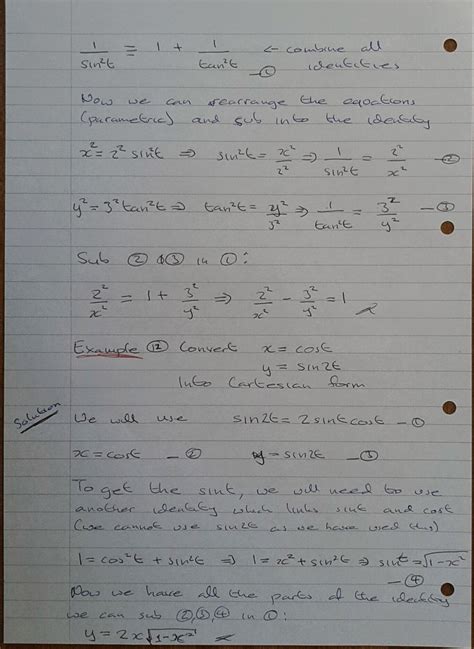 1/sin²t ≡ 1 + 1/tan²t ← combine all
—① identities
Now we can rearrange the equations
(parametric) and sub into the identity
x² = 2² sin²t ⇒ sin²t = x²/2² ⇒ 1/sin²t = 2²/x² —②
y² = 3² tan²t ⇒ tan²t = y²/3² ⇒ 1/tan²t = 3²/y² —③
Sub ② & ③ in ①:
2²/x² = 1 + 3²/y² ⇒ 2²/x² - 3²/y² = 1
Example ⑫ Convert x = cost
y = sin2t
Into Cartesian form
Solution
We will use sin2t = 2sint cost —①
x = cost —② y = sin2t —③
To get the sint, we will need to use
another identity which links sint and cost
(we cannot use sin2t as we have used this)
1 = cos²t + sin²t ⇒ 1 = x² + sin²t ⇒ sint = √1-x²
—④
Now we have all the parts of the identity
we can sub ②,③,④ in ①:
y = 2x√1-x²